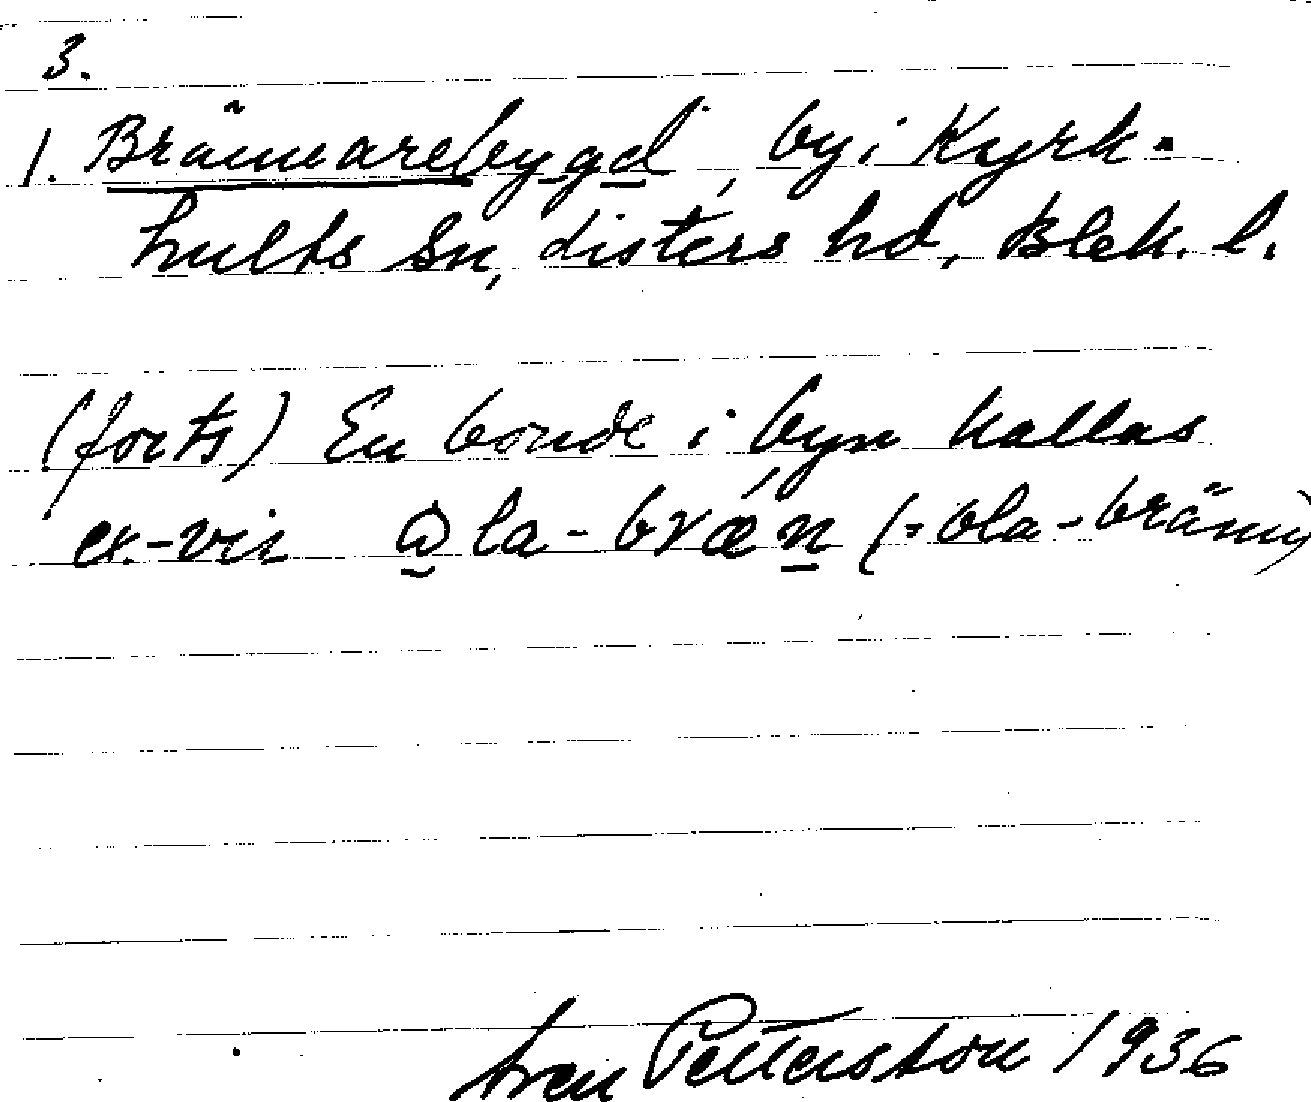 3.
1. Brännarebygd, by i Kyrk-
hults sn, Listers hd, Blek. l.
(forts) En bonde i byn kallas
ex-vis ola-brǽn (= Ola-bränn)
Sven Pettersson 1936